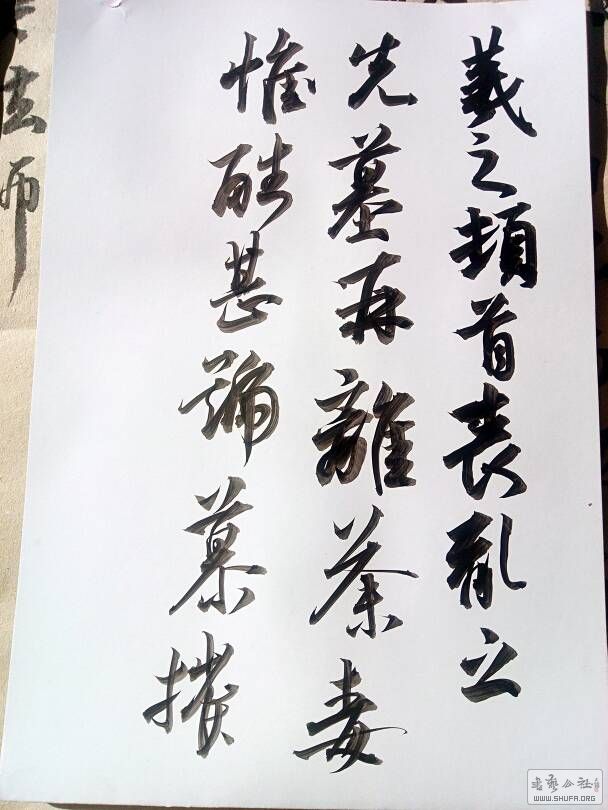 羲之頓首喪亂之
先墓再離荼毒
惟酷甚號慕摧
書藝公社
WWW.SHUFA.ORG